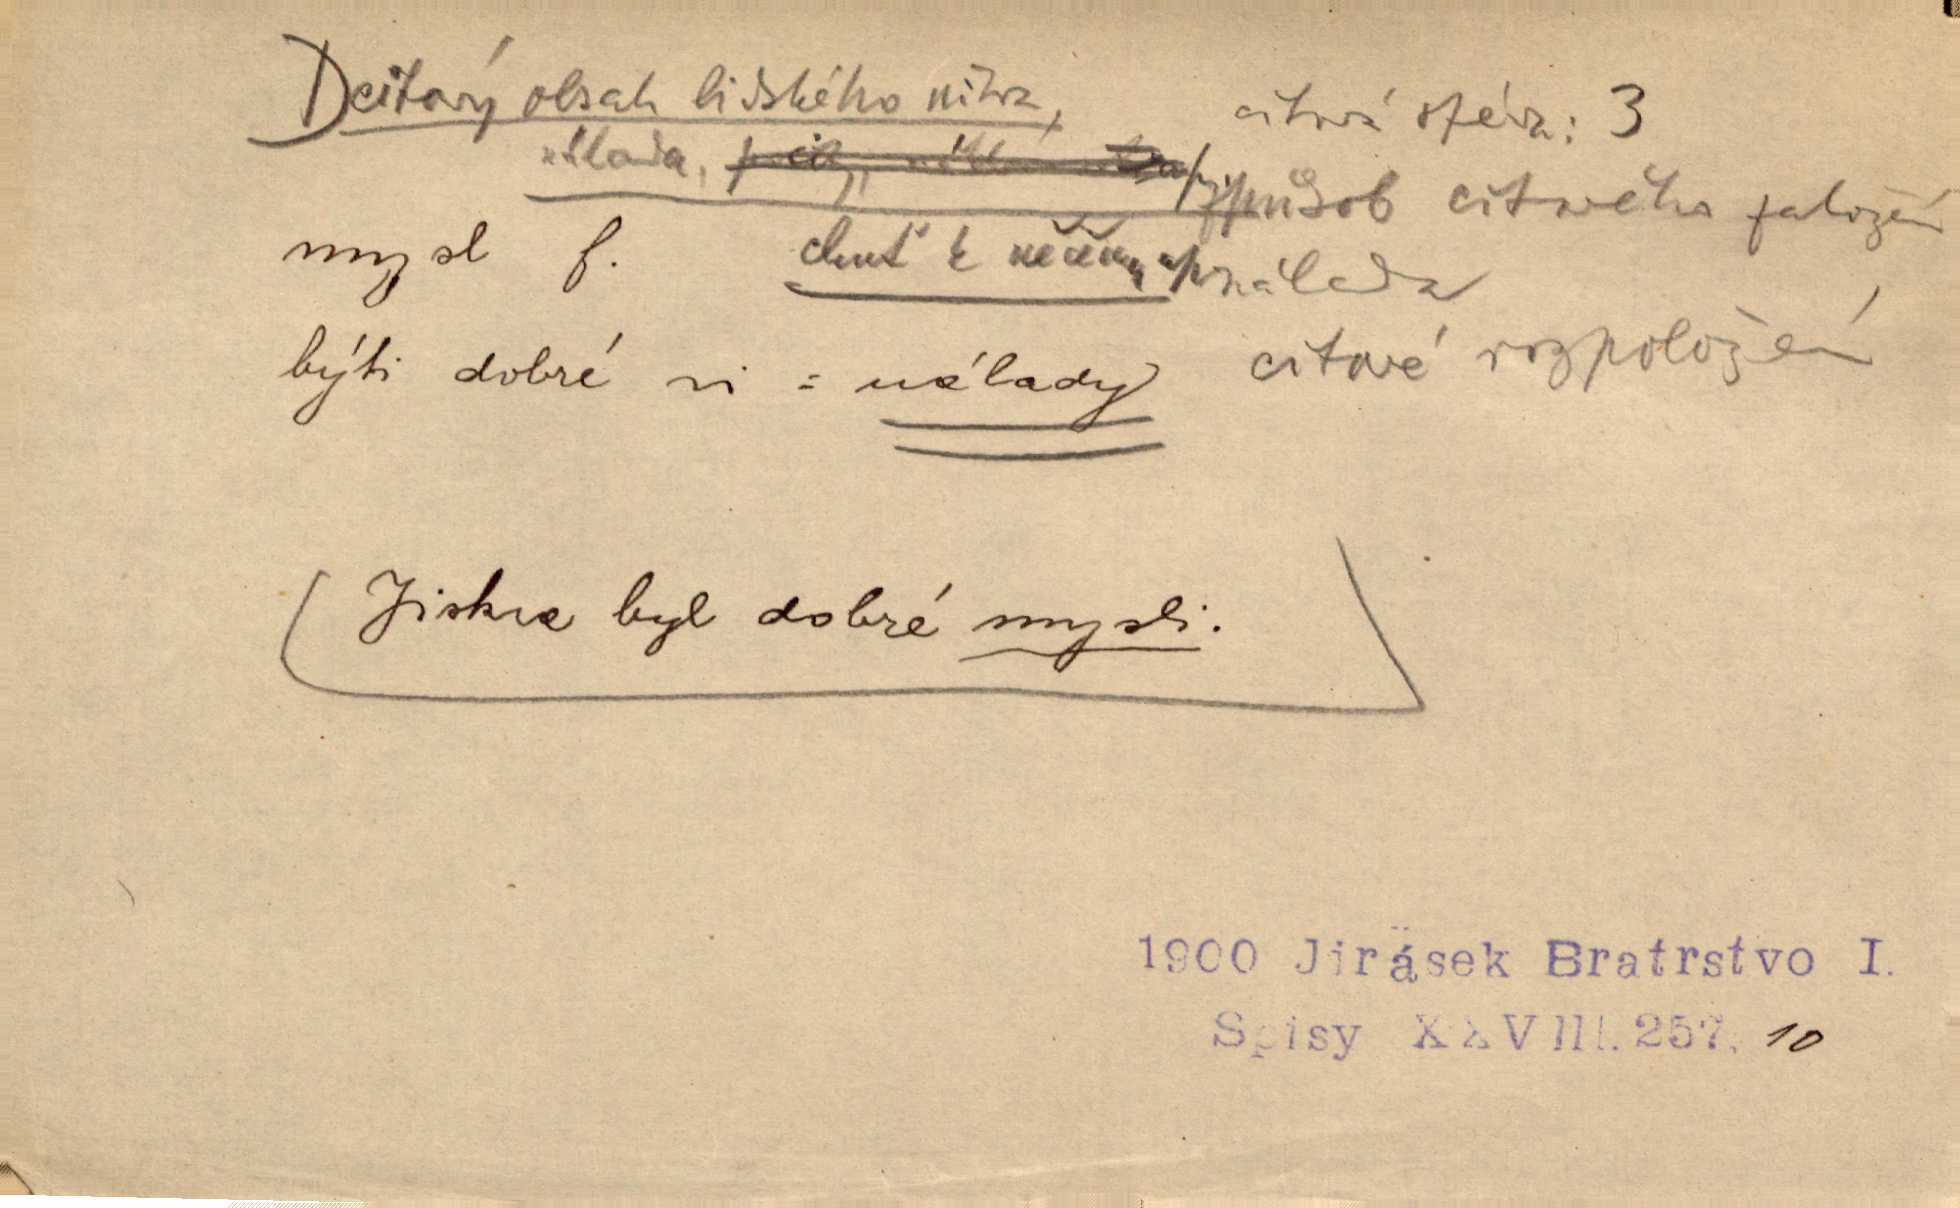 D citový obsah lidského nitra,
citová sféra: 3
nálada,
způsob citového založení
mysl f.
chuť k něčemu
nálada
býti dobré ~i = nálady
citové rozpoložení
Jiskra byl dobré mysli.
1900 Jirásek Bratrstvo I.
Spisy XXVIII. 257. 10